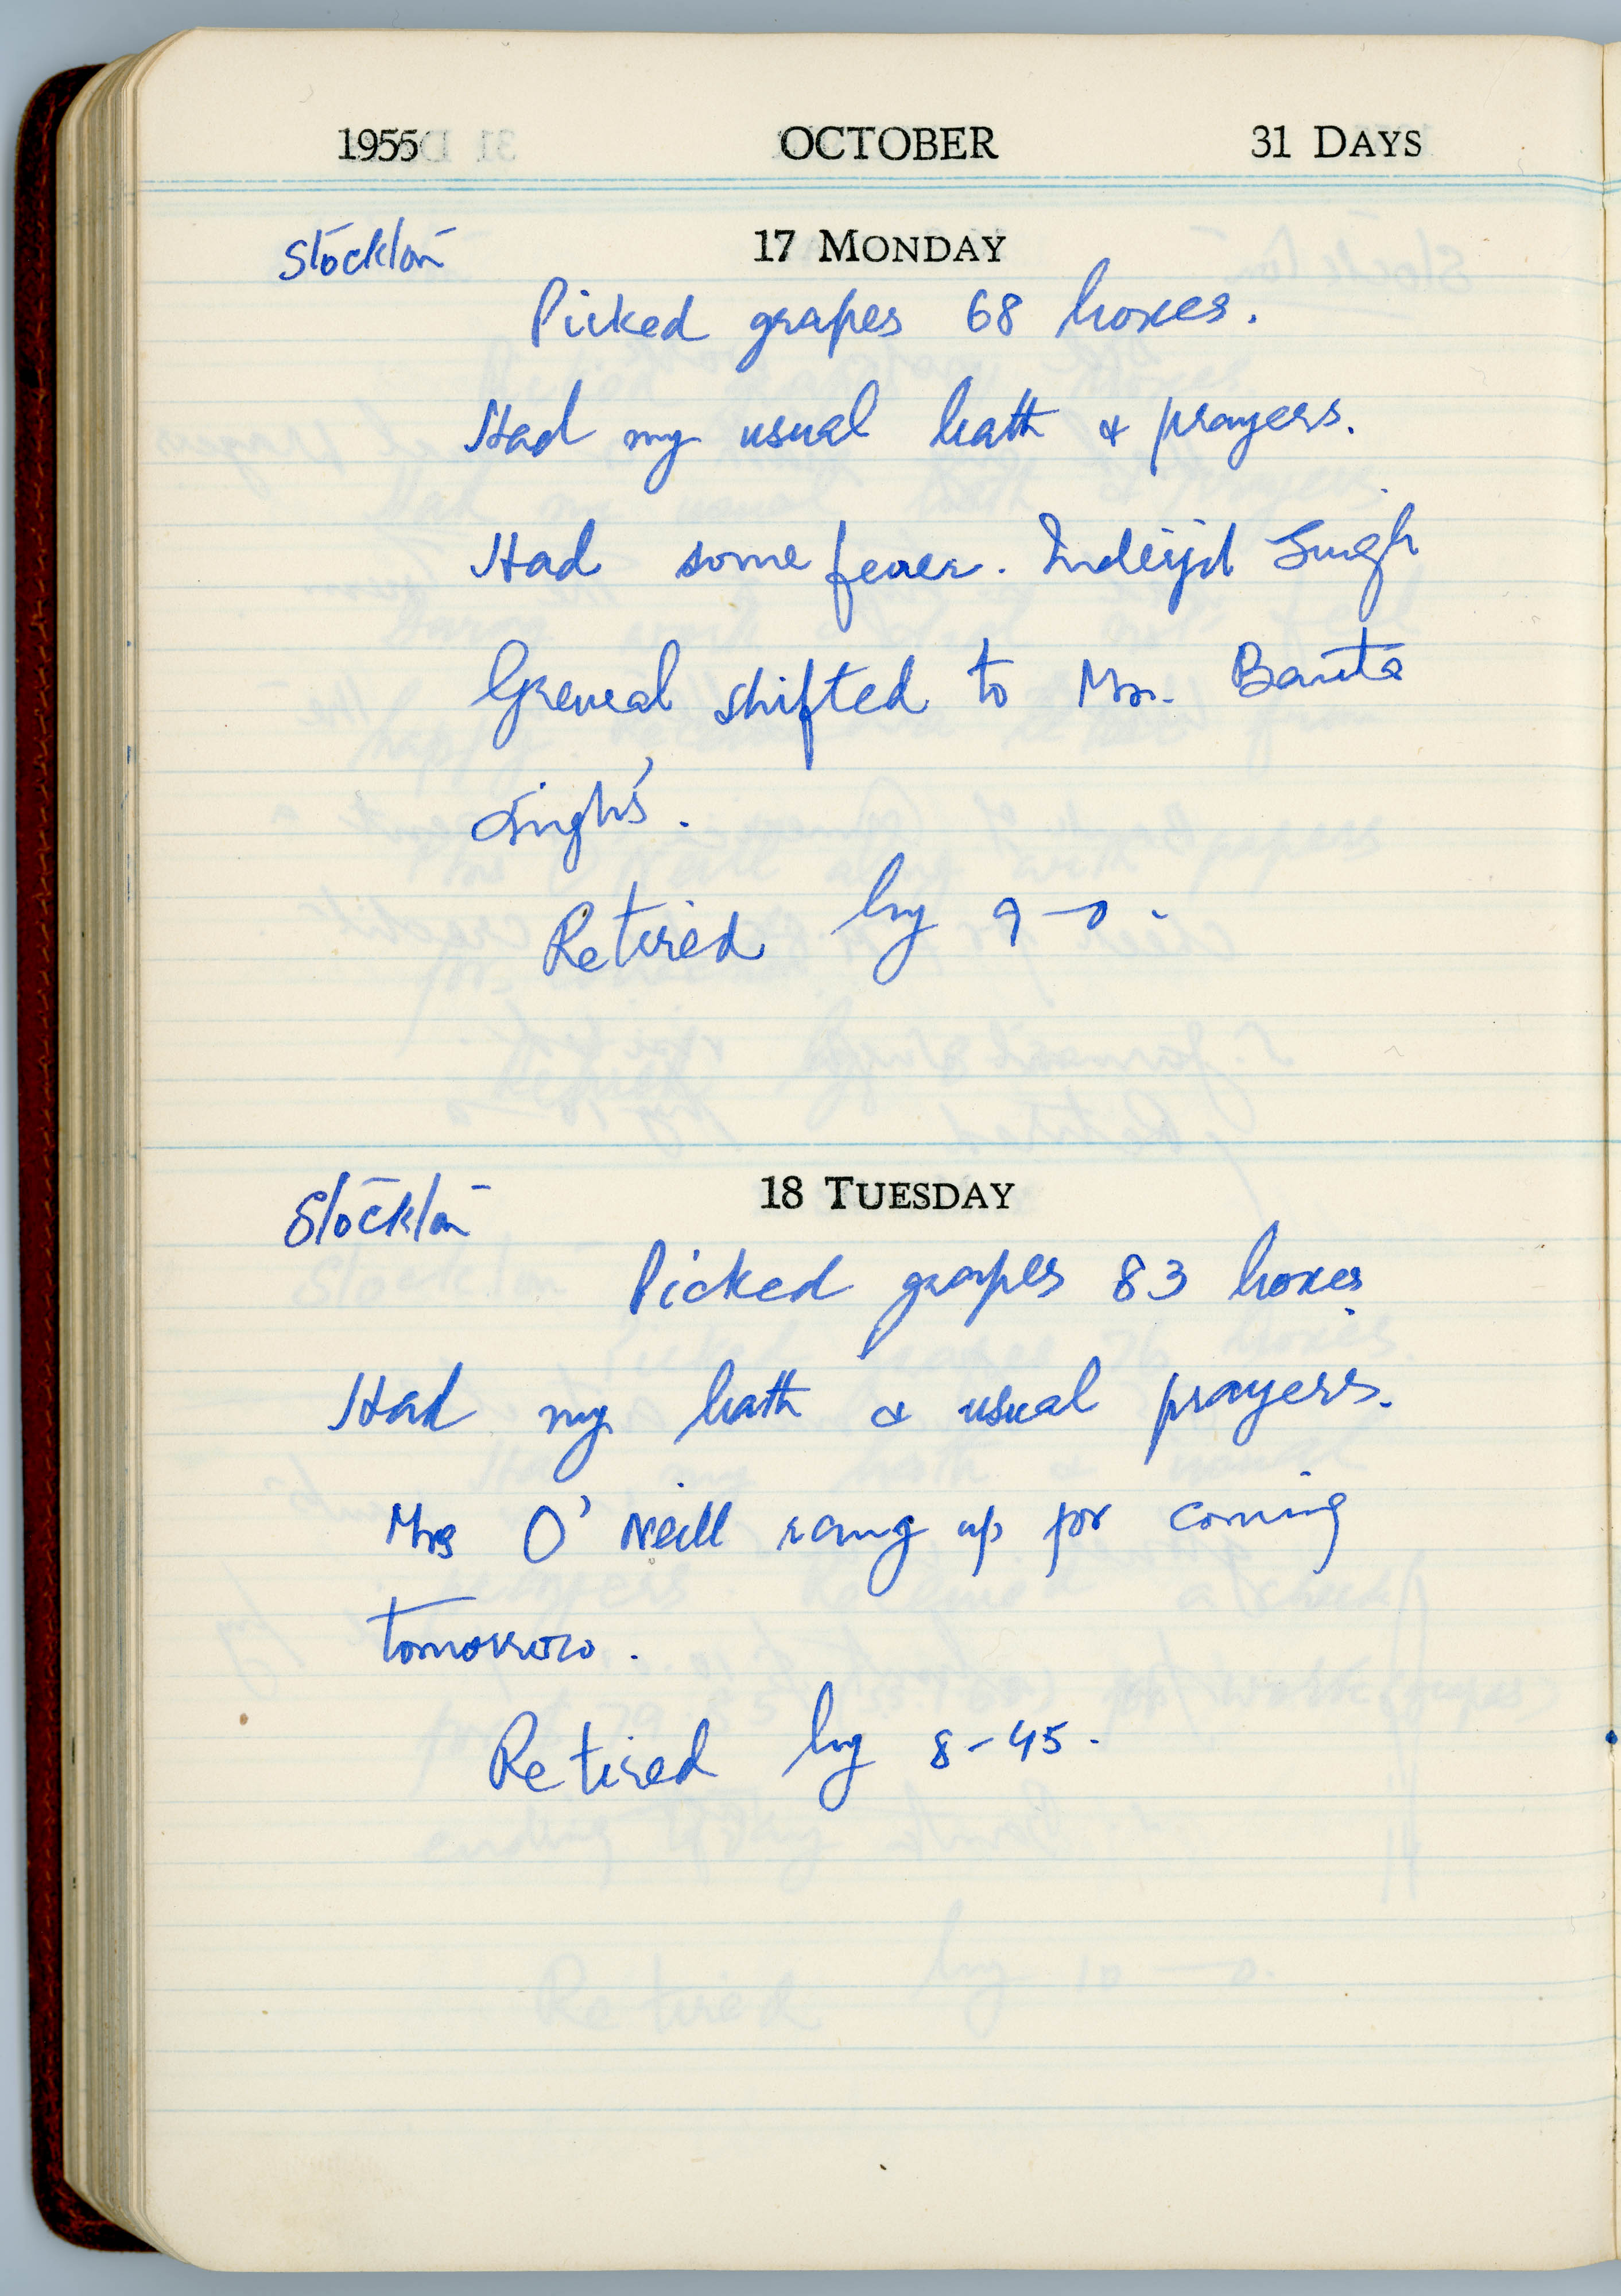 1955 OCTOBER 31 DAYS
Stockton 17 MONDAY
Picked grapes 68 boxes.
Had my usual bath & prayers.
Had some fever. Inderjit Singh
Grewal shifted to Mr. Banta
Singh's.
Retired by 9-0.
Stockton 18 TUESDAY
Picked grapes 83 boxes.
Had my bath & usual prayers.
Mrs O'Neill rang up for coming
tomorrow.
Retired by 8-45.